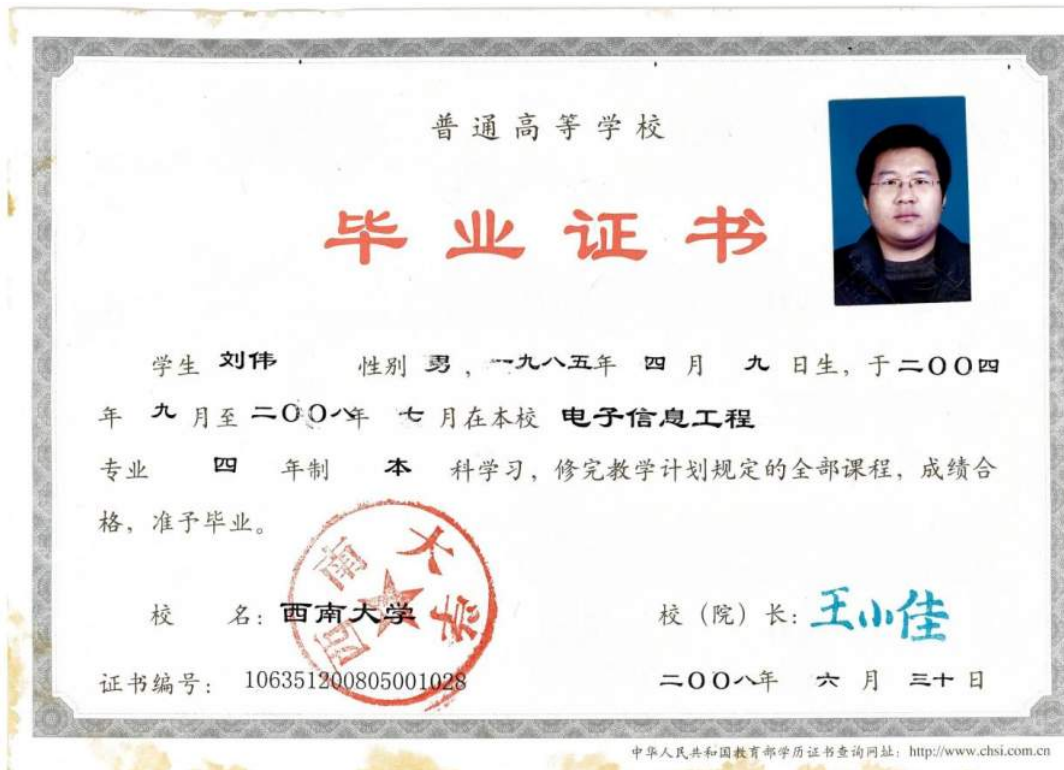 普通高等学校
毕业证书
学生 刘伟 性别 男，一九八五年 四 月 九 日生，于二〇〇四
年 九 月至二〇〇八年 七 月在本校 电子信息工程
专业 四 年制 本 科学习，修完教学计划规定的全部课程，成绩合
格，准予毕业。
西南大学
校 名：西南大学
校（院）长：王小佳
证书编号： 106351200805001028
二〇〇八年 六 月 三十 日
中华人民共和国教育部学历证书查询网址：http://www.chsi.com.cn